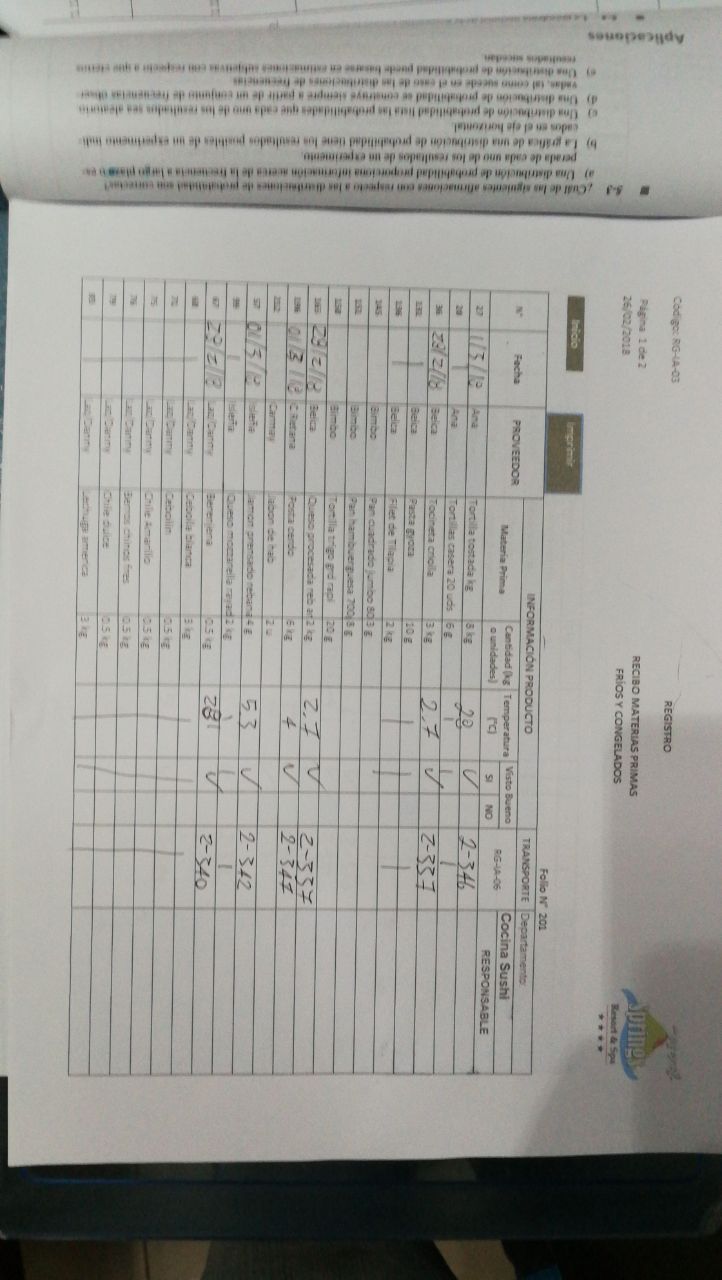 5-3 ¿Cuál de las siguientes afirmaciones con respecto a las distribuciones de probabilidad son correctas?
a) Una distribución de probabilidad proporciona información acerca de la frecuencia a largo plazo o es-
perada de cada uno de los resultados de un experimento.
b) La gráfica de una distribución de probabilidad tiene los resultados posibles de un experimento indi-
cados en el eje horizontal.
c) Una distribución de probabilidad lista las probabilidades que cada uno de los resultados sea aleatorio
d) Una distribución de probabilidad se construye siempre a partir de un conjunto de frecuencias obser-
vadas, tal como sucede en el caso de las distribuciones de frecuencias.
e) Una distribución de probabilidad puede basarse en estimaciones subjetivas con respecto a que ciertos
resultados sucedan.
Aplicaciones
Código: RG-IA-03
Página 1 de 2
26/02/2018
REGISTRO
RECIBO MATERIAS PRIMAS
FRÍOS Y CONGELADOS
Springs
Resort & Spa
Inicio
Imprimir
Folio N° 201
INFORMACIÓN PRODUCTO TRANSPORTE Departamento:
N° Fecha PROVEEDOR Materia Prima Cantidad (kg o unidades) Temperatura (°C) Visto Bueno SI NO RG-IA-06 Cocina Sushi RESPONSABLE
27 1/3/18 Ana Tortilla tostada kg 8 kg 28 2-346
28 Ana Tortillas casera 20 uds 6 g
36 28/2/18 Belca Tocineta criolla 3 kg 2.7 2-337
131 Belca Pasta gyoza 10 g
136 Belca Filet de Tilapia 2 kg
145 Bimbo Pan cuadrado jumbo 80 3 g
151 Bimbo Pan hamburguesa 700 8 g
158 Bimbo Tortilla trigo grd rapi 20 g
165 28/2/18 Belca Queso procesada reb 2 kg 2.7 2-337
196 01/3/18 C Retana Posta cerdo 6 kg 4 2-347
212 Canmay Jabon de hab 2 u
57 01/3/18 Isleña Jamon prensado rebana 4 g 5.3 2-342
99 Isleña Queso mozzarella rayad 2 kg
67 28/2/18 Lao/Danny Berenjena 0.5 kg 28 2-340
68 Lao/Danny Cebolla blanca 3 kg
71 Lao/Danny Cebollin 0.5 kg
75 Lao/Danny Chile Amarillo 0.5 kg
76 Lao/Danny Beros chinos fres 0.5 kg
79 Lao/Danny Chile dulce 0.5 kg
85 Lao/Danny Lechuga america 3 kg